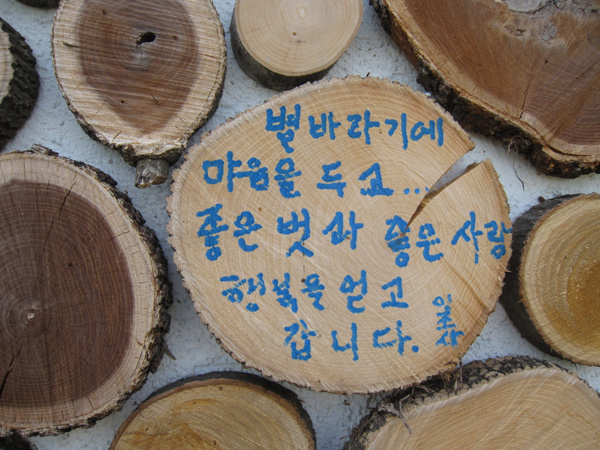 별바라기에
마음을 두고...
좋은 벗과 좋은 사랑
행복을 얻고
갑니다.